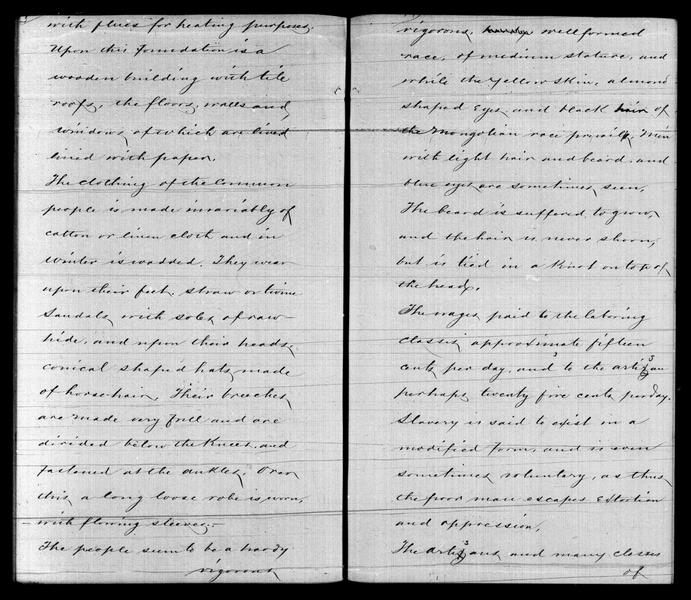 with flues for heating purposes.
Upon this foundation is a
wooden building with tile
roofs, the floors, walls and
windows of which are lived
lined with paper.
The clothing of the common
people is made invariably of
cotton or linen cloth and in
winter is wadded. They wear
upon their feet, straw or twine
sandals, with soles of raw-
hide, and upon their heads,
conical shaped hats, made
of horse-hair. Their breeches
are made very full and are
divided below the knees, and
fastened at the ankles. Over
this, a long loose robe is worn,
with flowing sleeves.
The people seem to be a hardy
vigorous
vigorous, well formed
race, of medium stature, and
while the yellow skin, almond
shaped eyes, and black hair of
the Mongolian race prevail, men
with light hair and beard, and
blue eyes, are sometimes seen.
The beard is suffered to grow,
and the hair is never shorn,
but is tied in a knot on top of
the head.
The wages paid to the laboring
classes approximate fifteen
cents per day, and to the artisan
perhaps twenty five cents per day.
Slavery is said to exist in a
modified form, and is even
sometimes voluntary, as thus
the poor man escapes extortion
and oppression.
The artisans and many classes
of